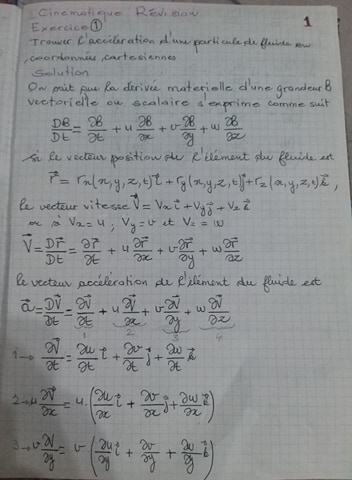 Cinematique Révision
1
Exercice ①
Trouver l'accéleration d'une particule de fluide en
coordonnées, cartesiennes
Solution
On sait que la derivée materielle d'une grandeur B
vectorielle ou scalaire s'exprime comme suit
DB/Dt = ∂B/∂t + u ∂B/∂x + v ∂B/∂y + w ∂B/∂z
si le vecteur position de l'élément du fluide est
r⃗ = rx(x,y,z,t)i⃗ + ry(x,y,z,t)j⃗ + rz(x,y,z,t)k⃗,
le vecteur vitesse V⃗ = Vx i⃗ + Vy j⃗ + Vz k⃗
Vx = u ; Vy = v et Vz = w
V⃗ = Dr⃗/Dt = ∂r⃗/∂t + u ∂r⃗/∂x + v ∂r⃗/∂y + w ∂r⃗/∂z
le vecteur accéleration de l'élément du fluide est
a⃗ = DV⃗/Dt = ∂V⃗/∂t + u ∂V⃗/∂x + v ∂V⃗/∂y + w ∂V⃗/∂z
1 2 3 4
1→ ∂V⃗/∂t = ∂u/∂t i⃗ + ∂v/∂t j⃗ + ∂w/∂t k⃗
2→ u ∂V⃗/∂x = u·(∂u/∂x i⃗ + ∂v/∂x j⃗ + ∂w/∂x k⃗)
3→ v ∂V⃗/∂y = v (∂u/∂y i⃗ + ∂v/∂y + ∂w/∂y k⃗)